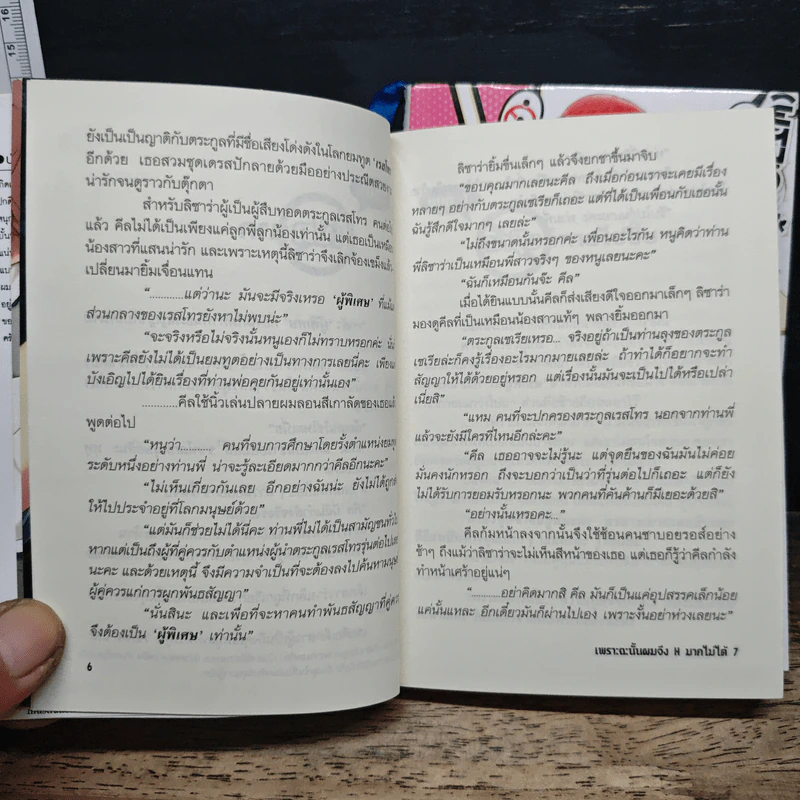 ยังเป็นเป็นญาติกับตระกูลที่มีชื่อเสียงโด่งดังในโลกยมทูต
อีกด้วย เธอสวมชุดเดรสปักลายด้วยมืออย่างประณีตสวย
น่ารักจนดูราวกับตุ๊กตา
สำหรับลิซาร่าผู้เป็นผู้สืบทอดตระกูลเรสโทร คน
แล้ว คีลไม่ได้เป็นเพียงแค่ลูกพี่ลูกน้องเท่านั้น แต่เธอเป็นเหมือน
น้องสาวที่แสนน่ารัก และเพราะเหตุนี้ลิซาร่าจึงเลิกจ้องเขม็งแล้ว
เปลี่ยนมายิ้มเจื่อนแทน
“............แต่ว่านะ มันจะมีจริงเหรอ ‘ผู้พิเศษ’ ที่
ส่วนกลางของเรสโทรยังหาไม่พบน่ะ”
“จะจริงหรือไม่จริงนั้นหนูเองก็ไม่ทราบหรอกค่ะ
เพราะคีลยังไม่ได้เป็นยมทูตอย่างเป็นทางการเลยนี่คะ เพียง
บังเอิญไปได้ยินเรื่องที่ท่านพ่อคุยกันอยู่เท่านั้นเอง”
............คีลใช้นิ้วเล่นปลายผมลอนสีเกาลัดของเธอแล้ว
พูดต่อไป
“หนูว่า........... คนที่จบการศึกษาโดยรั้งตำแหน่ง
ระดับหนึ่งอย่างท่านพี่ น่าจะรู้ละเอียดมากกว่าคีลอีกนะคะ”
“ไม่เห็นเกี่ยวกันเลย อีกอย่างฉันน่ะ ยังไม่ได้ถูก
ให้ไปประจำอยู่ที่โลกมนุษย์ด้วย”
“แต่มันก็ช่วยไม่ได้นี่คะ ท่านพี่ไม่ได้เป็นสามัญชนทั่วไป
หากแต่เป็นถึงผู้ที่คู่ควรกับตำแหน่งผู้นำตระกูลเรสโทรรุ่นต่อไป
นะคะ และด้วยเหตุนี้ จึงมีความจำเป็นที่จะต้องลงไปค้นหามนุษย์
ผู้คู่ควรแก่การผูกพันธสัญญา”
“นั่นสินะ และเพื่อที่จะหาคนทำพันธสัญญาที่คู่ควร
จึงต้องเป็น ‘ผู้พิเศษ’ เท่านั้น”
6
ลิซาร่ายิ้มขื่นเล็กๆ แล้วจึงยกชาขึ้นมาจิบ
“ขอบคุณมากเลยนะคีล ถึงเมื่อก่อนเราจะเคยมีเรื่อง
หลายๆ อย่างกับตระกูลเซเรียก็เถอะ แต่ที่ได้เป็นเพื่อนกับเธอนั้น
ฉันรู้สึกดีใจมากๆ เลยล่ะ”
“ไม่ถึงขนาดนั้นหรอกค่ะ เพื่อนอะไรกัน หนูคิดว่าท่าน
พี่ลิซาร่าเป็นเหมือนพี่สาวจริงๆ ของหนูเลยนะคะ”
“ฉันก็เหมือนกันจ๊ะ คีล”
เมื่อได้ยินแบบนั้นคีลก็ส่งเสียงดีใจออกมาเล็กๆ ลิซาร่า
มองดูคีลที่เป็นเหมือนน้องสาวแท้ๆ พลางยิ้มออกมา
“ตระกูลเซเรียเหรอ... จริงอยู่ถ้าเป็นท่านลุงของตระกูล
เซเรียล่ะก็คงรู้เรื่องอะไรมากมายเลยล่ะ ถ้าทำได้ก็อยากจะทำ
สัญญาให้ได้ด้วยอยู่หรอก แต่เรื่องนั้นมันจะเป็นไปได้หรือเปล่า
เนี่ยสิ”
“แหม คนที่จะปกครองตระกูลเรสโทร นอกจากท่านพี่
แล้วจะยังมีใครที่ไหนอีกล่ะคะ”
“คีล เธออาจจะไม่รู้นะ แต่จุดยืนของฉันมันไม่ค่อย
มั่นคงนักหรอก ถึงจะบอกว่าเป็นว่าที่รุ่นต่อไปก็เถอะ แต่ก็ยัง
ไม่ได้รับการยอมรับหรอกนะ พวกคนที่คัดค้านก็มีเยอะด้วยสิ”
“อย่างนั้นเหรอคะ...”
คีลก้มหน้าลงจากนั้นจึงใช้ช้อนคนชาบอยรอส์อย่าง
ช้าๆ ถึงแม้ว่าลิซาร่าจะไม่เห็นสีหน้าของเธอ แต่เธอก็รู้ว่าคีลกำลัง
ทำหน้าเศร้าอยู่แน่ๆ
“............อย่าคิดมากสิ คีล มันก็เป็นแค่อุปสรรคเล็กน้อย
แค่นั้นแหละ อีกเดี๋ยวมันก็ผ่านไปเอง เพราะงั้นอย่าห่วงเลยนะ”
เพราะฉะนั้นผมจึง H มากไม่ได้ 7